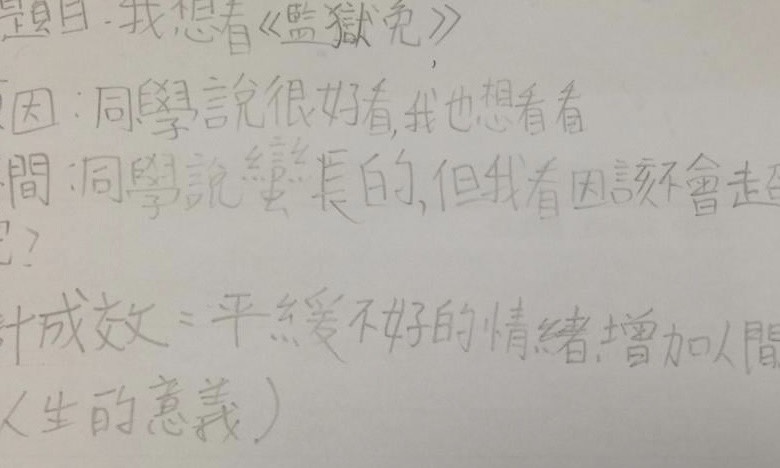 題目:我想看《監獄兔》
因:同學說很好看,我也想看看
間:同學說蠻長的,但我看因該不會超
?
計成效:平緩不好的情緒,增加人間
人生的意義)